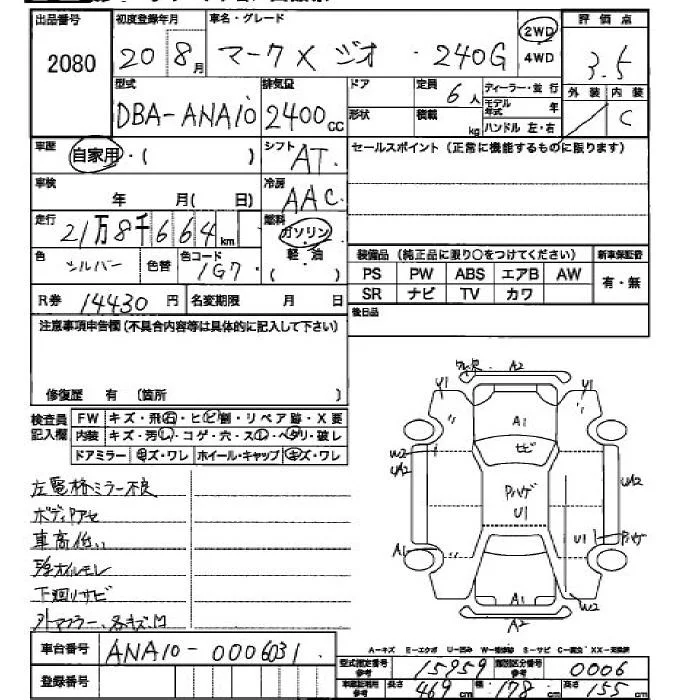 出品番号 2080
初度登録年月 20 8月
車名・グレード マークXジオ ・240G
2WD 4WD
評価点 3.5
外装 内装 C
型式 DBA-ANA10
排気量 2400cc
ドア 形状
定員 6人
積載 kg
ディーラー・並行
モデル年式 年
ハンドル 左・右
車歴 自家用・( )
シフト AT
セールスポイント (正常に機能するものに限ります)
車検 年 月(日)
冷房 AAC
走行 21万8千664km
燃料 ガソリン・軽油 ( )
色 シルバー 色替 色コード 1G7
装備品 (純正品に限り○をつけてください)
新車保証書 有・無
PS PW ABS エアB AW
SR ナビ TV カワ
R券 14430円 名変期限 月 日
後日品
注意事項申告欄(不具合内容等は具体的に記入して下さい)
修復歴 有 (箇所 )
検査員記入欄
FW キズ・飛石・ヒビ割・リペア跡・X要
内装 キズ・汚レ・コゲ・穴・スレ・ヘタリ・破レ
ドアミラー キズ・ワレ ホイール・キャップ キズ・ワレ
左電格ミラー不良
ボディアセ
車高低い
下廻りサビ
外マフラー、各キズ凹
A2
U1 U1
A1
ヒビ
W2 UA2
Pハゲ
U1
UA2
A1 U1 Pハゲ
W2
A1
A2
車台番号 ANA10-0006031
登録番号
A-キズ E-エクボ U-凹み W-補修跡 S-サビ C-腐食 XX-交換済
型式指定番号 参考 15959 類別区分番号 参考 0006
車両証利用 参考 長さ 469cm 幅 178cm 高さ 155cm